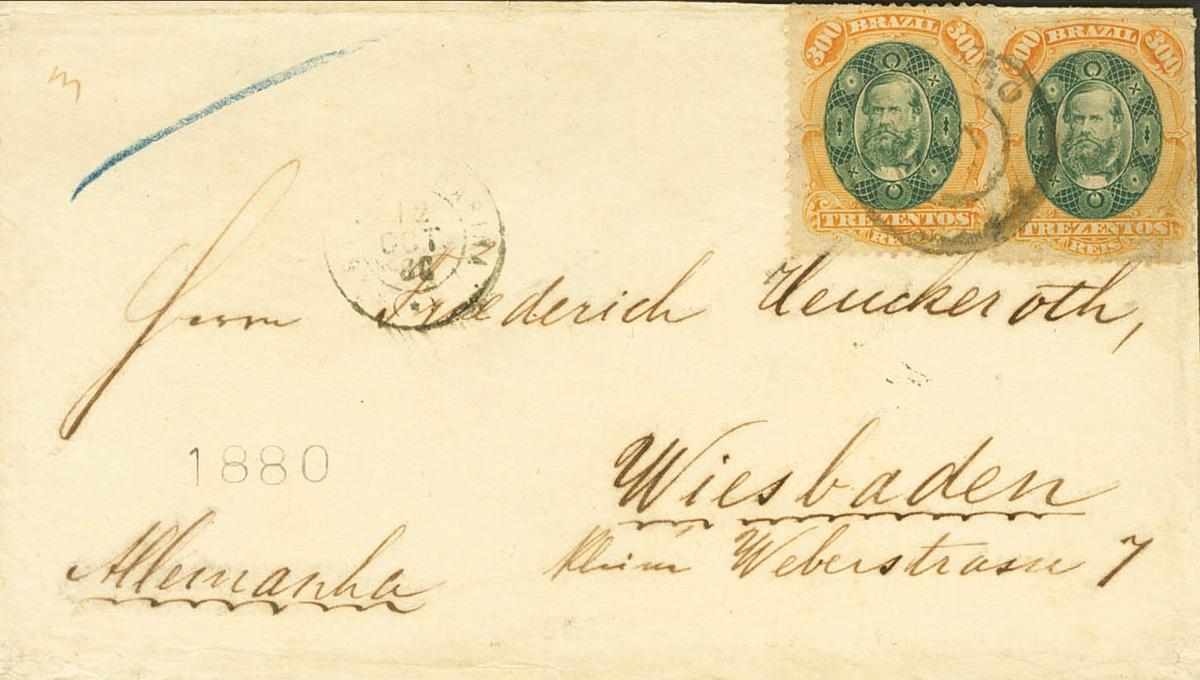 300 BRAZIL 300
TREZENTOS
REIS
00 BRAZIL 300
TREZENTOS
REIS
12
OCT
80
Herrn Friederich Heuckeroth,
1880
Wiesbaden
Allemanha
Weberstrasse 7